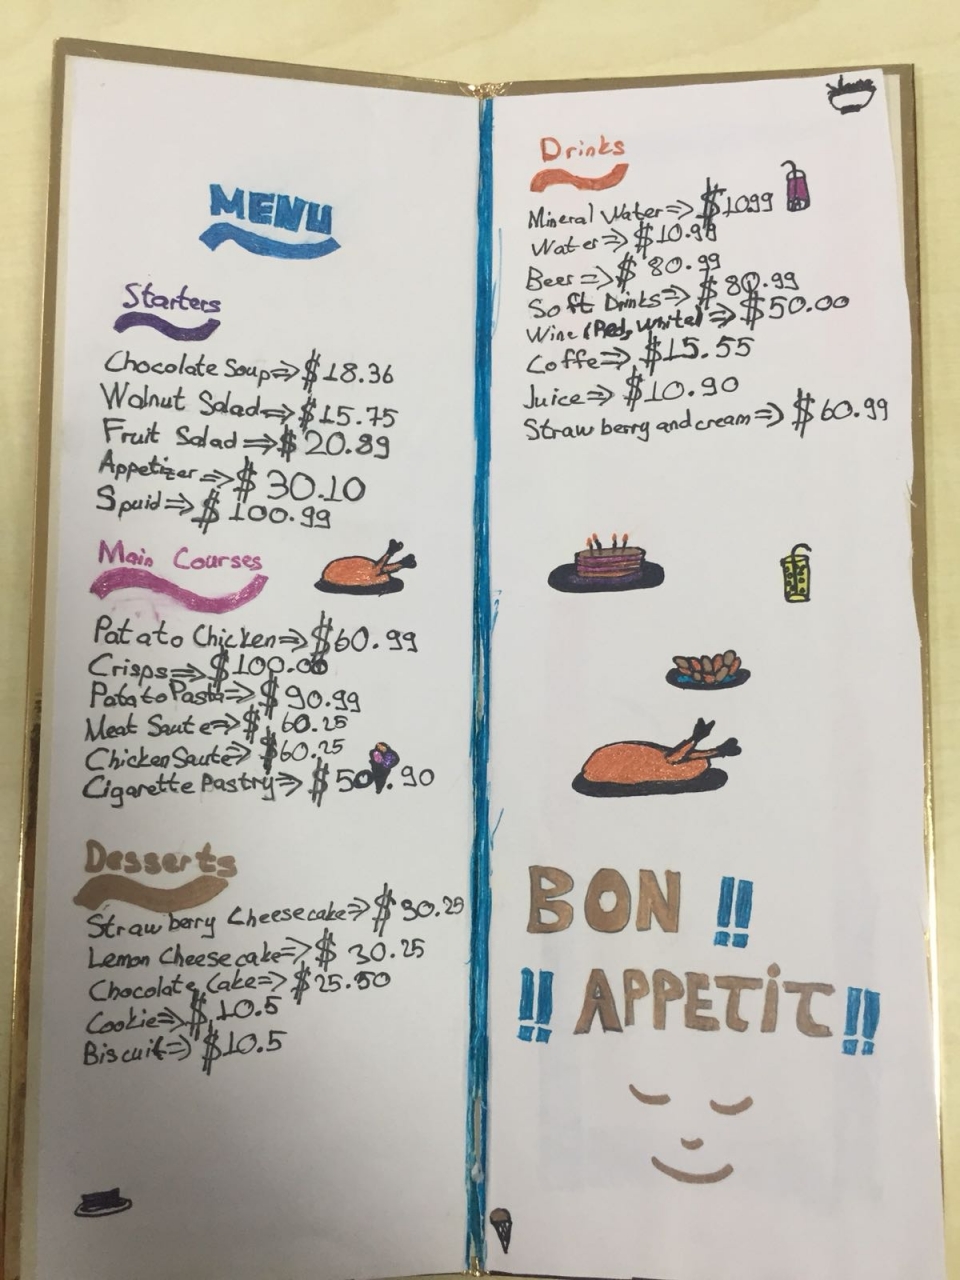 MENU
Starters
Chocolate Soup⇒ $18.36
Walnut Salad⇒ $15.75
Fruit Salad⇒ $20.89
Appetizer⇒ $30.10
Squid⇒ $100.99
Main Courses
Patato Chicken⇒ $60.99
Crisps⇒ $100.00
Patato Pasta⇒ $90.99
Meat Saute⇒ $60.25
Chicken Saute⇒ $60.25
Cigarette Pastry⇒ $50.90
Desserts
Strawberry Cheesecake⇒ $30.25
Lemon Cheesecake⇒ $30.25
Chocolate Cake⇒ $25.50
Cookie⇒ $10.5
Biscuit⇒ $10.5
Drinks
Mineral Water⇒ $10.99
Water⇒ $10.99
Beer⇒ $80.99
Soft Drinks⇒ $80.99
Wine (Red, White)⇒ $50.00
Coffe⇒ $15.55
Juice⇒ $10.90
Strawberry and cream⇒ $60.99
BON !!
!! APPETİT !!